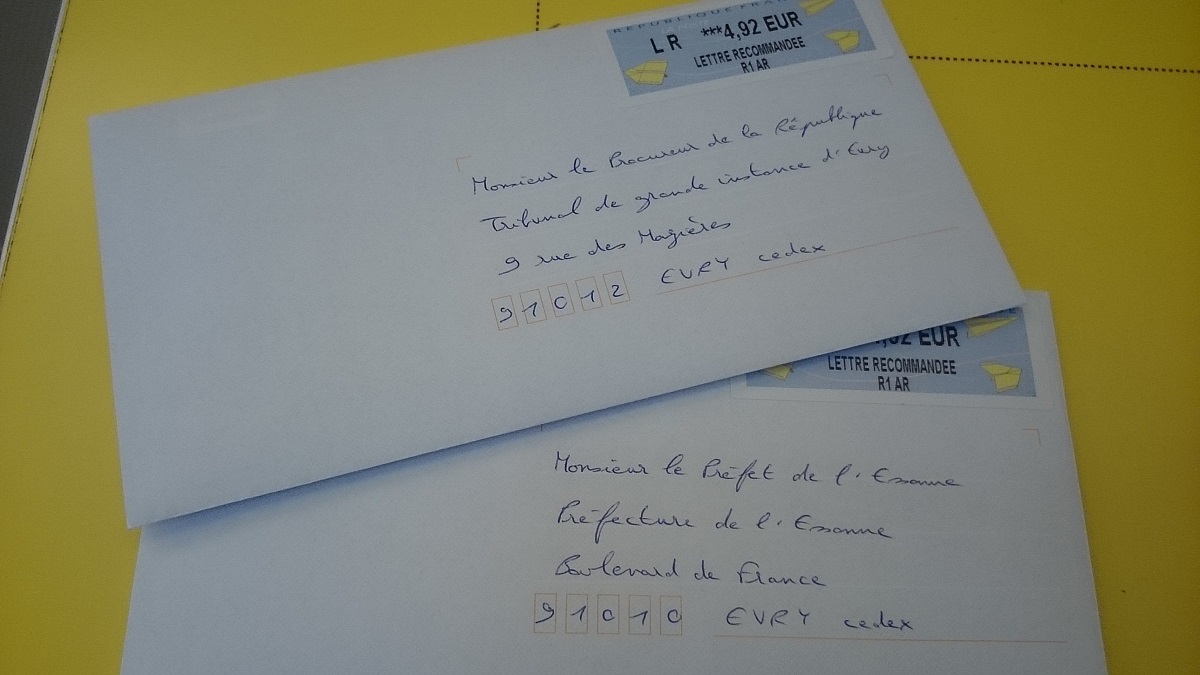 REPUBLIQUE FRAN
LR ***4,92 EUR
LETTRE RECOMMANDEE
R1 AR
Monsieur le Procureur de la République
Tribunal de grande instance d'Evry
9 rue des Mazières
91012 EVRY cedex
,92 EUR
LETTRE RECOMMANDEE
R1 AR
Monsieur le Préfet de l'Essonne
Préfecture de l'Essonne
Boulevard de France
91010 EVRY cedex